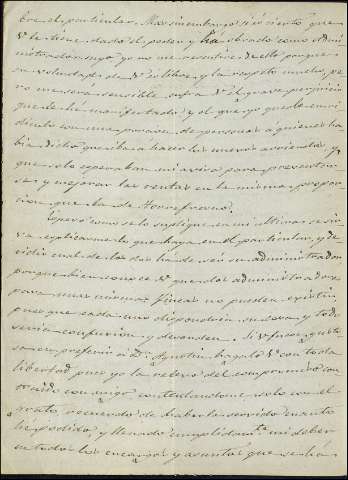 bre el particular. Mas sin embargo si es cierto que
V. le tiene dado el poder y ha obrado como admi
nistrador suyo yo no me resentiré de ello porque
su voluntad de V. es libre y la respeto mucho, pe
ro me será sensible sufra V. el grave perjuicio
que le hé manifestado y el que yo quede en ri
diculo con una porcion de personas á quienes ha
bia dicho que iba á hacer los nuevos arriendos y
que solo esperaban mi aviso para presentar
se y mejorar las rentas en la misma propor
cion que la de Torrefresno.
Espero como se lo supliqué en mi ultima se sir
va esplicarme lo que haya en el particular, y de
cidir cual de los dos ha de ser su administrador
porque bien conoce V. que dos administradores
para unas mismas fincas no pueden existir,
pues que cada uno dispondria su cosa y todo
seria confusion y desorden. Si V. fuese gusto
so en preferir á D. Agustin, hagalo V. con toda
libertad pues yo le relevo del compromiso con
traido conmigo, contentandome solo con el
grato recuerdo de haberle servido cuanto
he podido, y llenado cumplidamte. mi deber
en todos los encargos y asuntos que se há